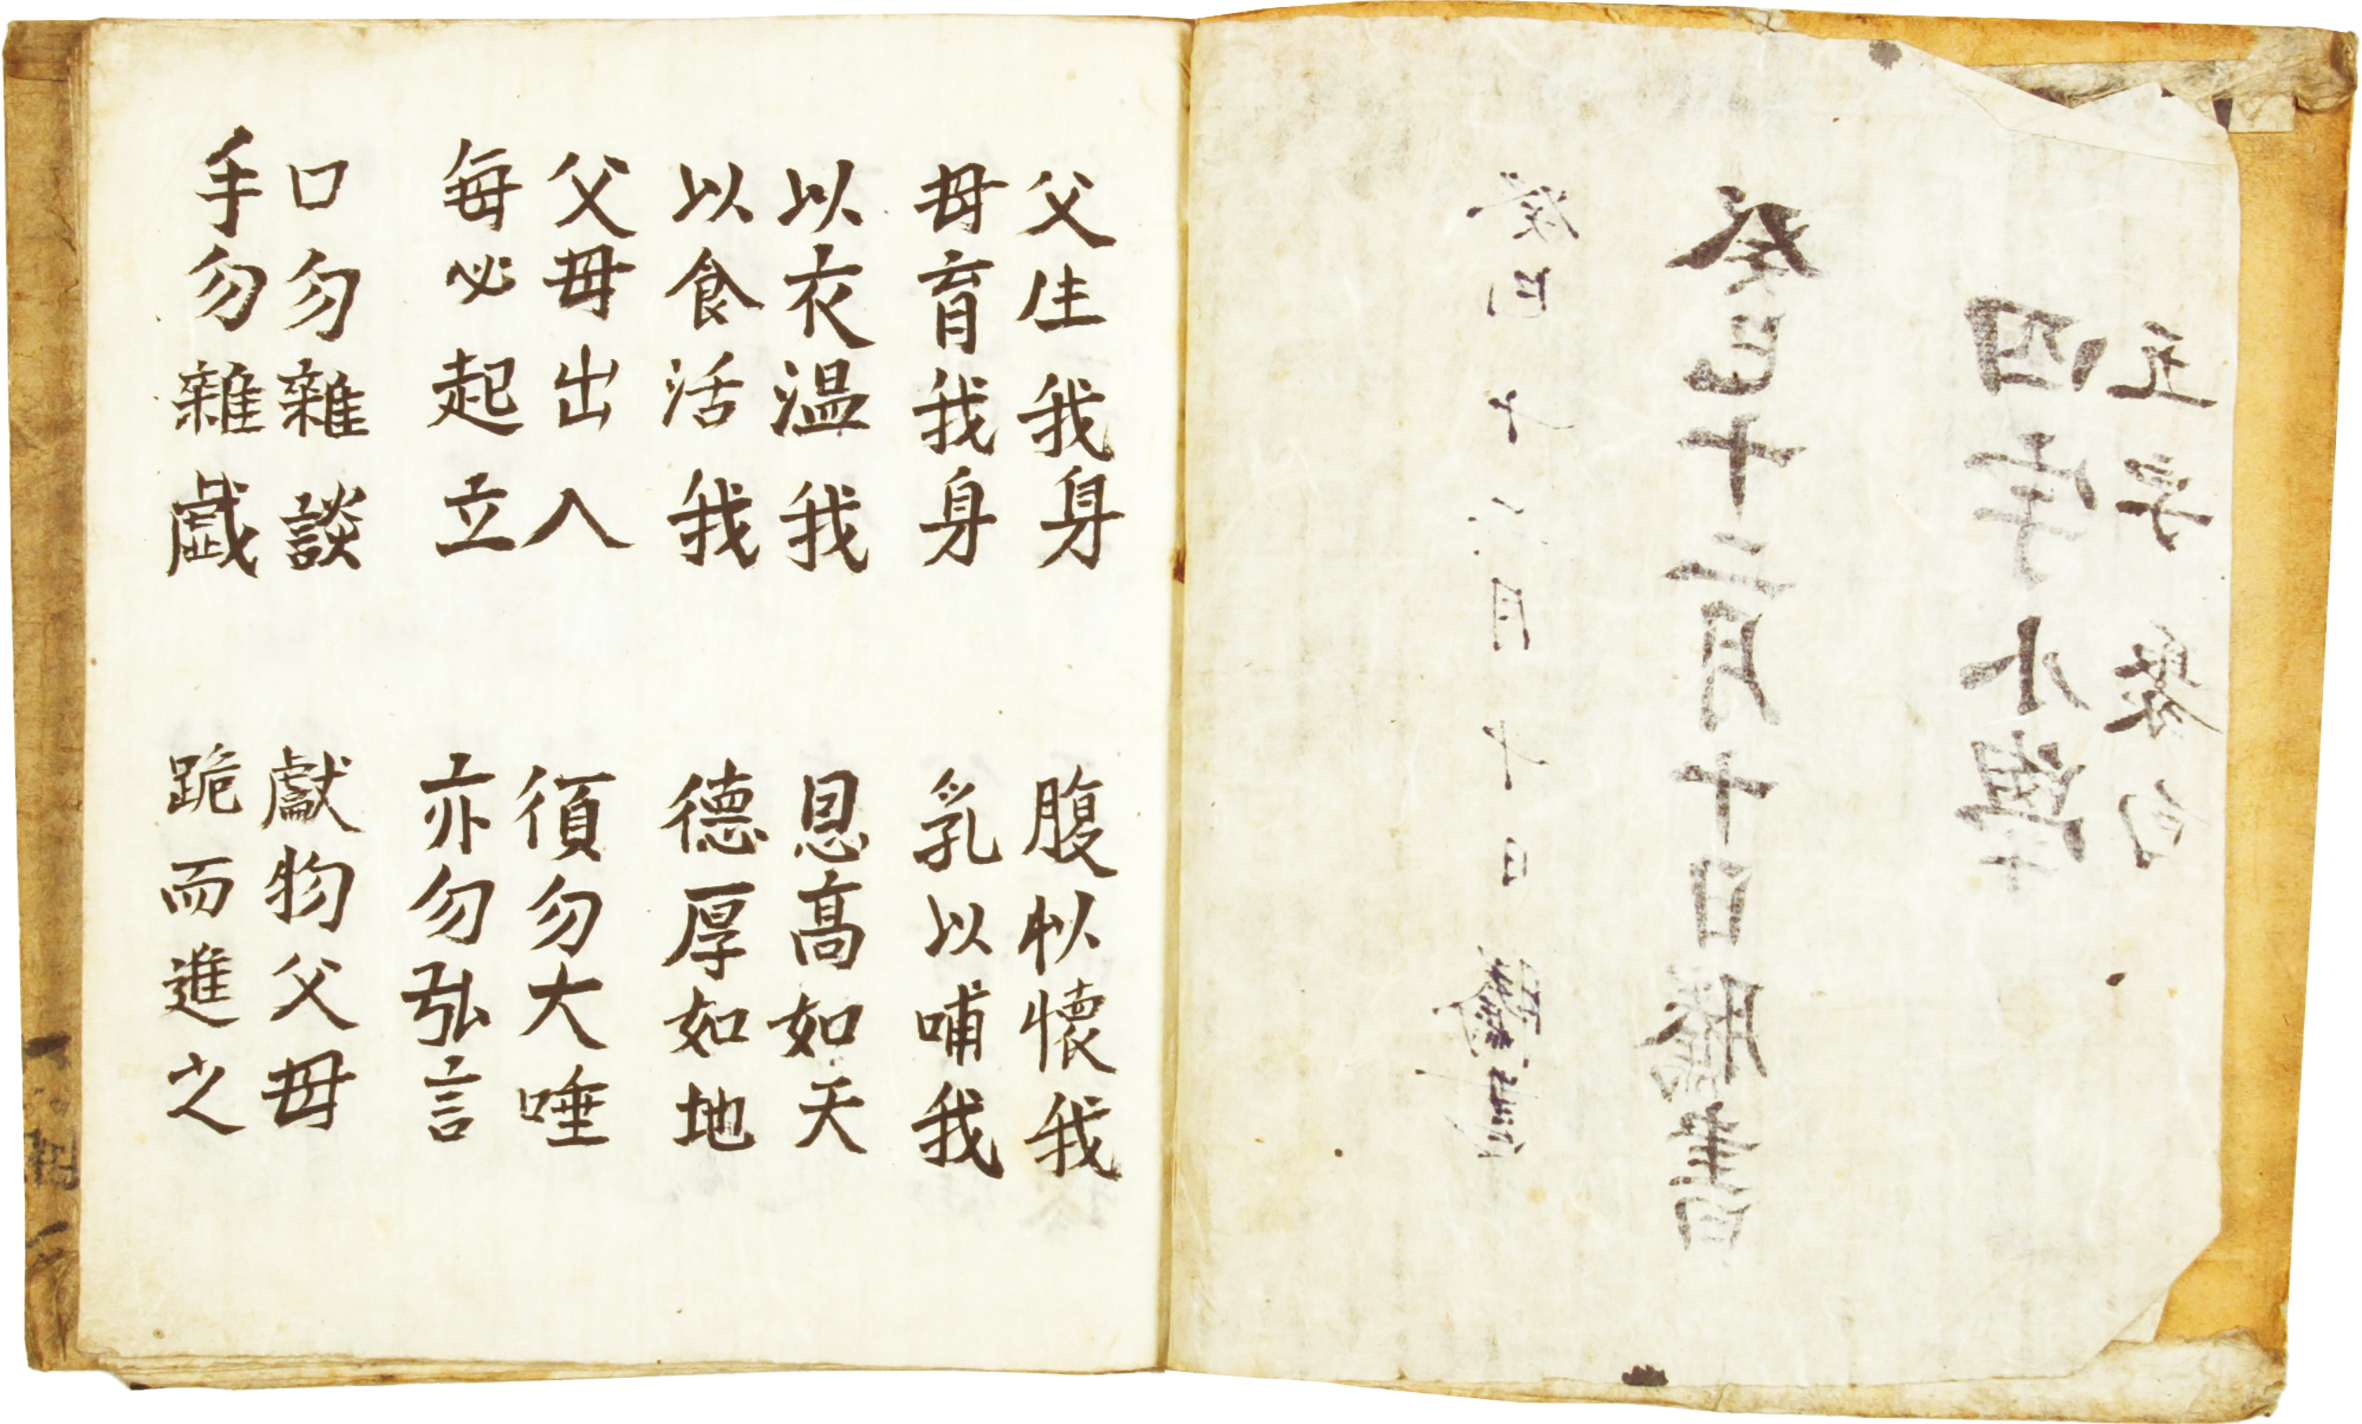 五字 句
四字小學
癸巳十二月十日謄書
癸巳十二月十日謄書
父生我身
母育我身
腹以懷我
乳以哺我
以衣温我
以食活我
恩髙如天
德厚如地
父母出入
每必起立
須勿大唾
亦勿弘言
口勿雜談
手勿雜戱
獻物父母
跪而進之